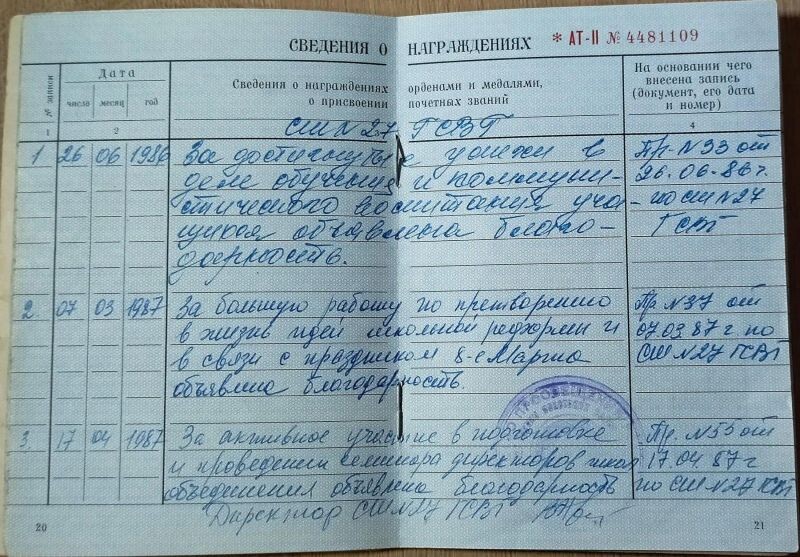 СВЕДЕНИЯ О НАГРАЖДЕНИЯХ * АТ-II № 4481109
№ записи
Дата
число месяц год
Сведения о награждениях орденами и медалями,
о присвоении почетных званий
На основании чего
внесена запись
(документ, его дата
и номер)
1 2 4
СШ N 27 ГСВГ
1 26 06 1986 За достигнутые успехи в Пр. N 33 от
деле обучения и коммуни- 26.06.86 г.
стического воспитания уча- по СШ N 27
щихся объявлена благо- ГСВГ
дарность.
2. 07 03 1987 За большую работу по претворению Пр N 37 от
в жизнь идей школьной реформы и 07.03.87 г по
в связи с праздником 8-е Марта СШ N 27 ГСВГ
объявлена благодарность.
3. 17 04 1987 За активное участие в подготовке Пр. N 53 от
и проведении семинара директоров школ 17.04.87 г
объединения объявлена благодарность по СШ N 27 ГСВГ
Директор СШ N 27 ГСВГ
20 21